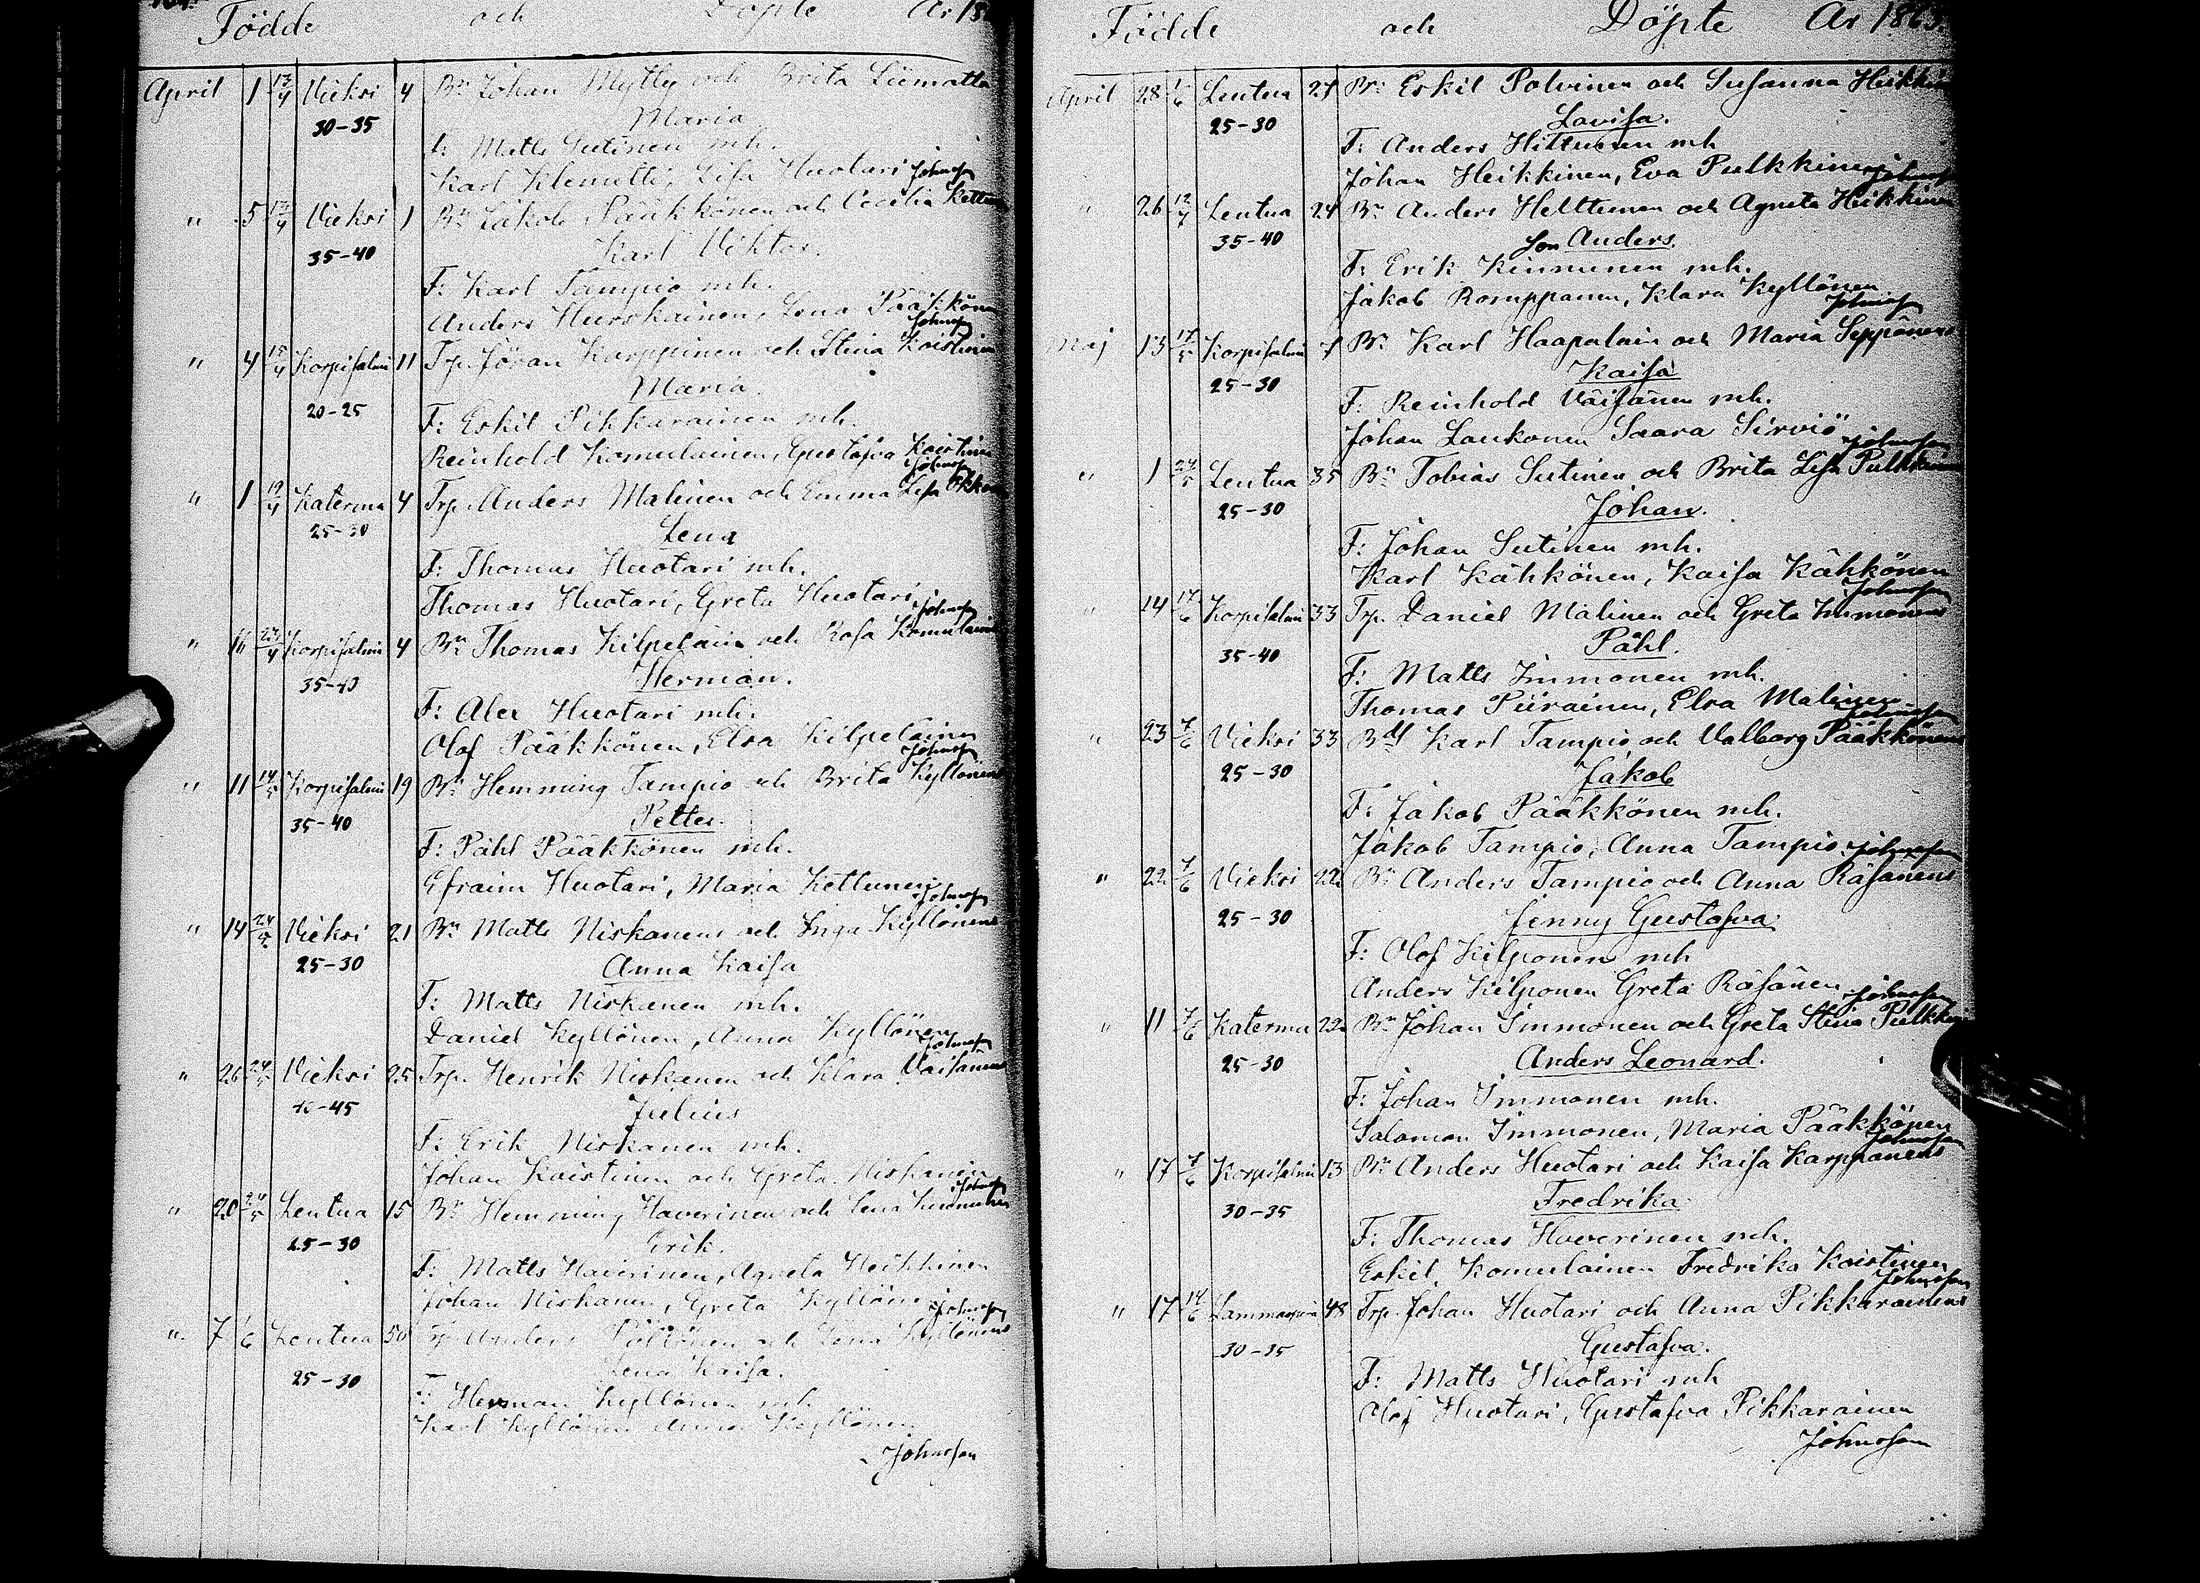 Födde och Döpte År 18
April 1 13/4 Wieksi 4 Bn Johan Mylly och Brita Liimatta
30-35 Maria
F: Matts Sutinen mh.
Karl Klemetti, Lisa Huotari Johnsson
" 5 13/4 Wieksi 1 Bn Jakob Pääkkönen och Cecilia Kettun
35-40 Karl Viktor
F: Karl Tampio mh.
Anders Hurskainen, Lena Pääkkönen
Johnsson
" 4 15/4 Korpisalmi 11 Trp. Göran Karppinen och Stina Kaistinen
20-25 Maria
F: Eskil Pikkarainen mh.
Reinhold Komulainen, Gustafva Kaistinen
Johnsson
" 1 19/4 Katerma 4 Trp. Anders Malinen och Emma Lisa
25-30 Lena
F: Thomas Huotari mh.
Thomas Huotari, Greta Huotari
Johnsson
" 16 23/4 Korpisalmi 4 Bn Thomas Kilpeläin och Rosa Komulain
35-40 Herman.
F: Alex Huotari mh.
Olof Pääkkönen, Elsa Kilpeläinen
Johnsson
" 11 14/5 Korpisalmi 19 Bn Hemming Tampio och Brita Kyllönens
35-40 Petter.
F: Påhl Pääkkönen mh.
Efraim Huotari, Maria Kettunen
Johnsson
" 14 24/5 Wieksi 21 Bn Matts Niskanens och Inga Kyllönens
25-30 Anna Kaisa
F: Matts Niskanen mh.
Daniel Kyllönen, Anna Kyllönen
Johnsson
" 26 24/5 Wieksi 25 Trp. Henrik Niskanen och Klara Väisänens
40-45 Julius
F: Erik Niskanen mh.
Johan Kaistinen och Greta Niskanen
Johnsson
" 20 24/5 Lentua 15 Bn Hemming Haverinen och Lena Kinnunen
25-30 Erik.
F: Matts Haverinen, Agneta Heikkinen
Johan Niskanen, Greta Kyllönen
Johnsson
" 7 1/6 Lentua 50 Trp Anders Pöllönen och Lena Kyllönens
25-30 Lena Kaisa.
F: Herman Kyllönen mh.
Karl Kyllönen Anna Kyllönen
Johnsson
Födde och Döpte År 1863.
April 28 1/6 Lentua 27 Bn Eskil Polvinen och Susanna Heikkin
25-30 Lovisa.
F: Anders Hiltunen mh
Johan Heikkinen, Eva Pulkkinen Johnsson
" 26 12/7 Lentua 24 Bn Anders Helttunen och Agneta Heikkinen
35-40 son Anders.
F: Erik Kinnunen mh.
Jakob Romppanen, Klara Kyllönen
Johnsson
Maj 13 17/5 Korpisalmi 7 Bn Karl Haapalain och Maria Seppänens
25-30 Kaisa
F: Reinhold Väisänen mh.
Johan Laukonen Saara Sirviö
Johnsson
" 1 24/5 Lentua 35 Bn Tobias Sutinen och Brita Lisa Pulkkinen
25-30 Johan.
F: Johan Sutinen mh.
Karl Kähkönen, Kaisa Kähkönen
Johnsson
" 14 14/6 Korpisalmi 33 Trp. Daniel Malinen och Greta Immonens
35-40 Påhl.
F: Matts Immonen mh.
Thomas Piirainen, Elsa Malinen
Johnsson
" 23 7/6 Wieksi 33 Bdl Karl Tampio och Valborg Pääkkönens
25-30 Jakob
F: Jakob Pääkkönen mh.
Jakob Tampio, Anna Tampio Johnsson
" 22 7/6 Wieksi 22 Bn Anders Tampio och Anna Räsänens
25-30 Jenny Gustafva
F: Olof Kilponen mh
Anders Kilponen Greta Räsänen
Johnsson
" 11 7/6 Katerma 22 Bn Johan Immonen och Greta Stina Pulkk
25-30 Anders Leonard.
F: Johan Immonen mh.
Salomon Immonen, Maria Pääkkönen
Johnsson
" 17 7/6 Korpisalmi 13 Bn Anders Huotari och Kaisa Karppanens
30-35 Fredrika
F: Thomas Haverinen mh.
Eskil Komulainen Fredrika Kaistinen
Johnsson
" 17 14/6 Lammasperä 48 Trp. Johan Huotari och Anna Pikkarainens
30-35 Gustafva.
F: Matts Huotari mh
Olof Huotari, Gustafva Pikkarainen
Johnsson